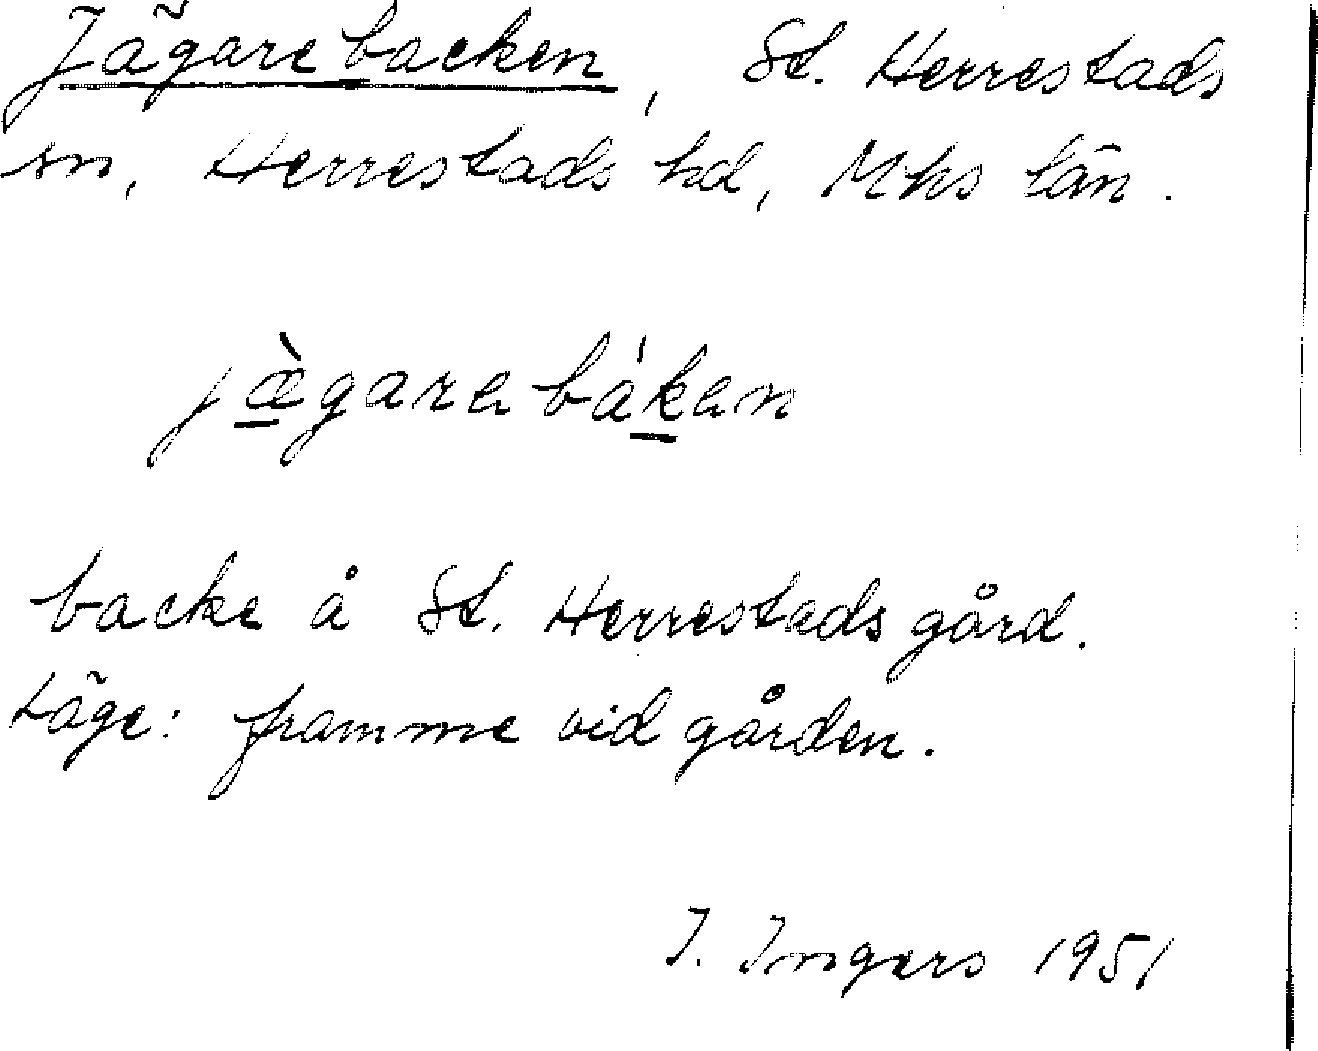 Jägarebacken, St. Herrestads
sn, Herrestads hd, Mhs län.
jæ̀garebákan
backe å St. Herrestads gård.
Läge: framme vid gården.
I. Ingers 1951